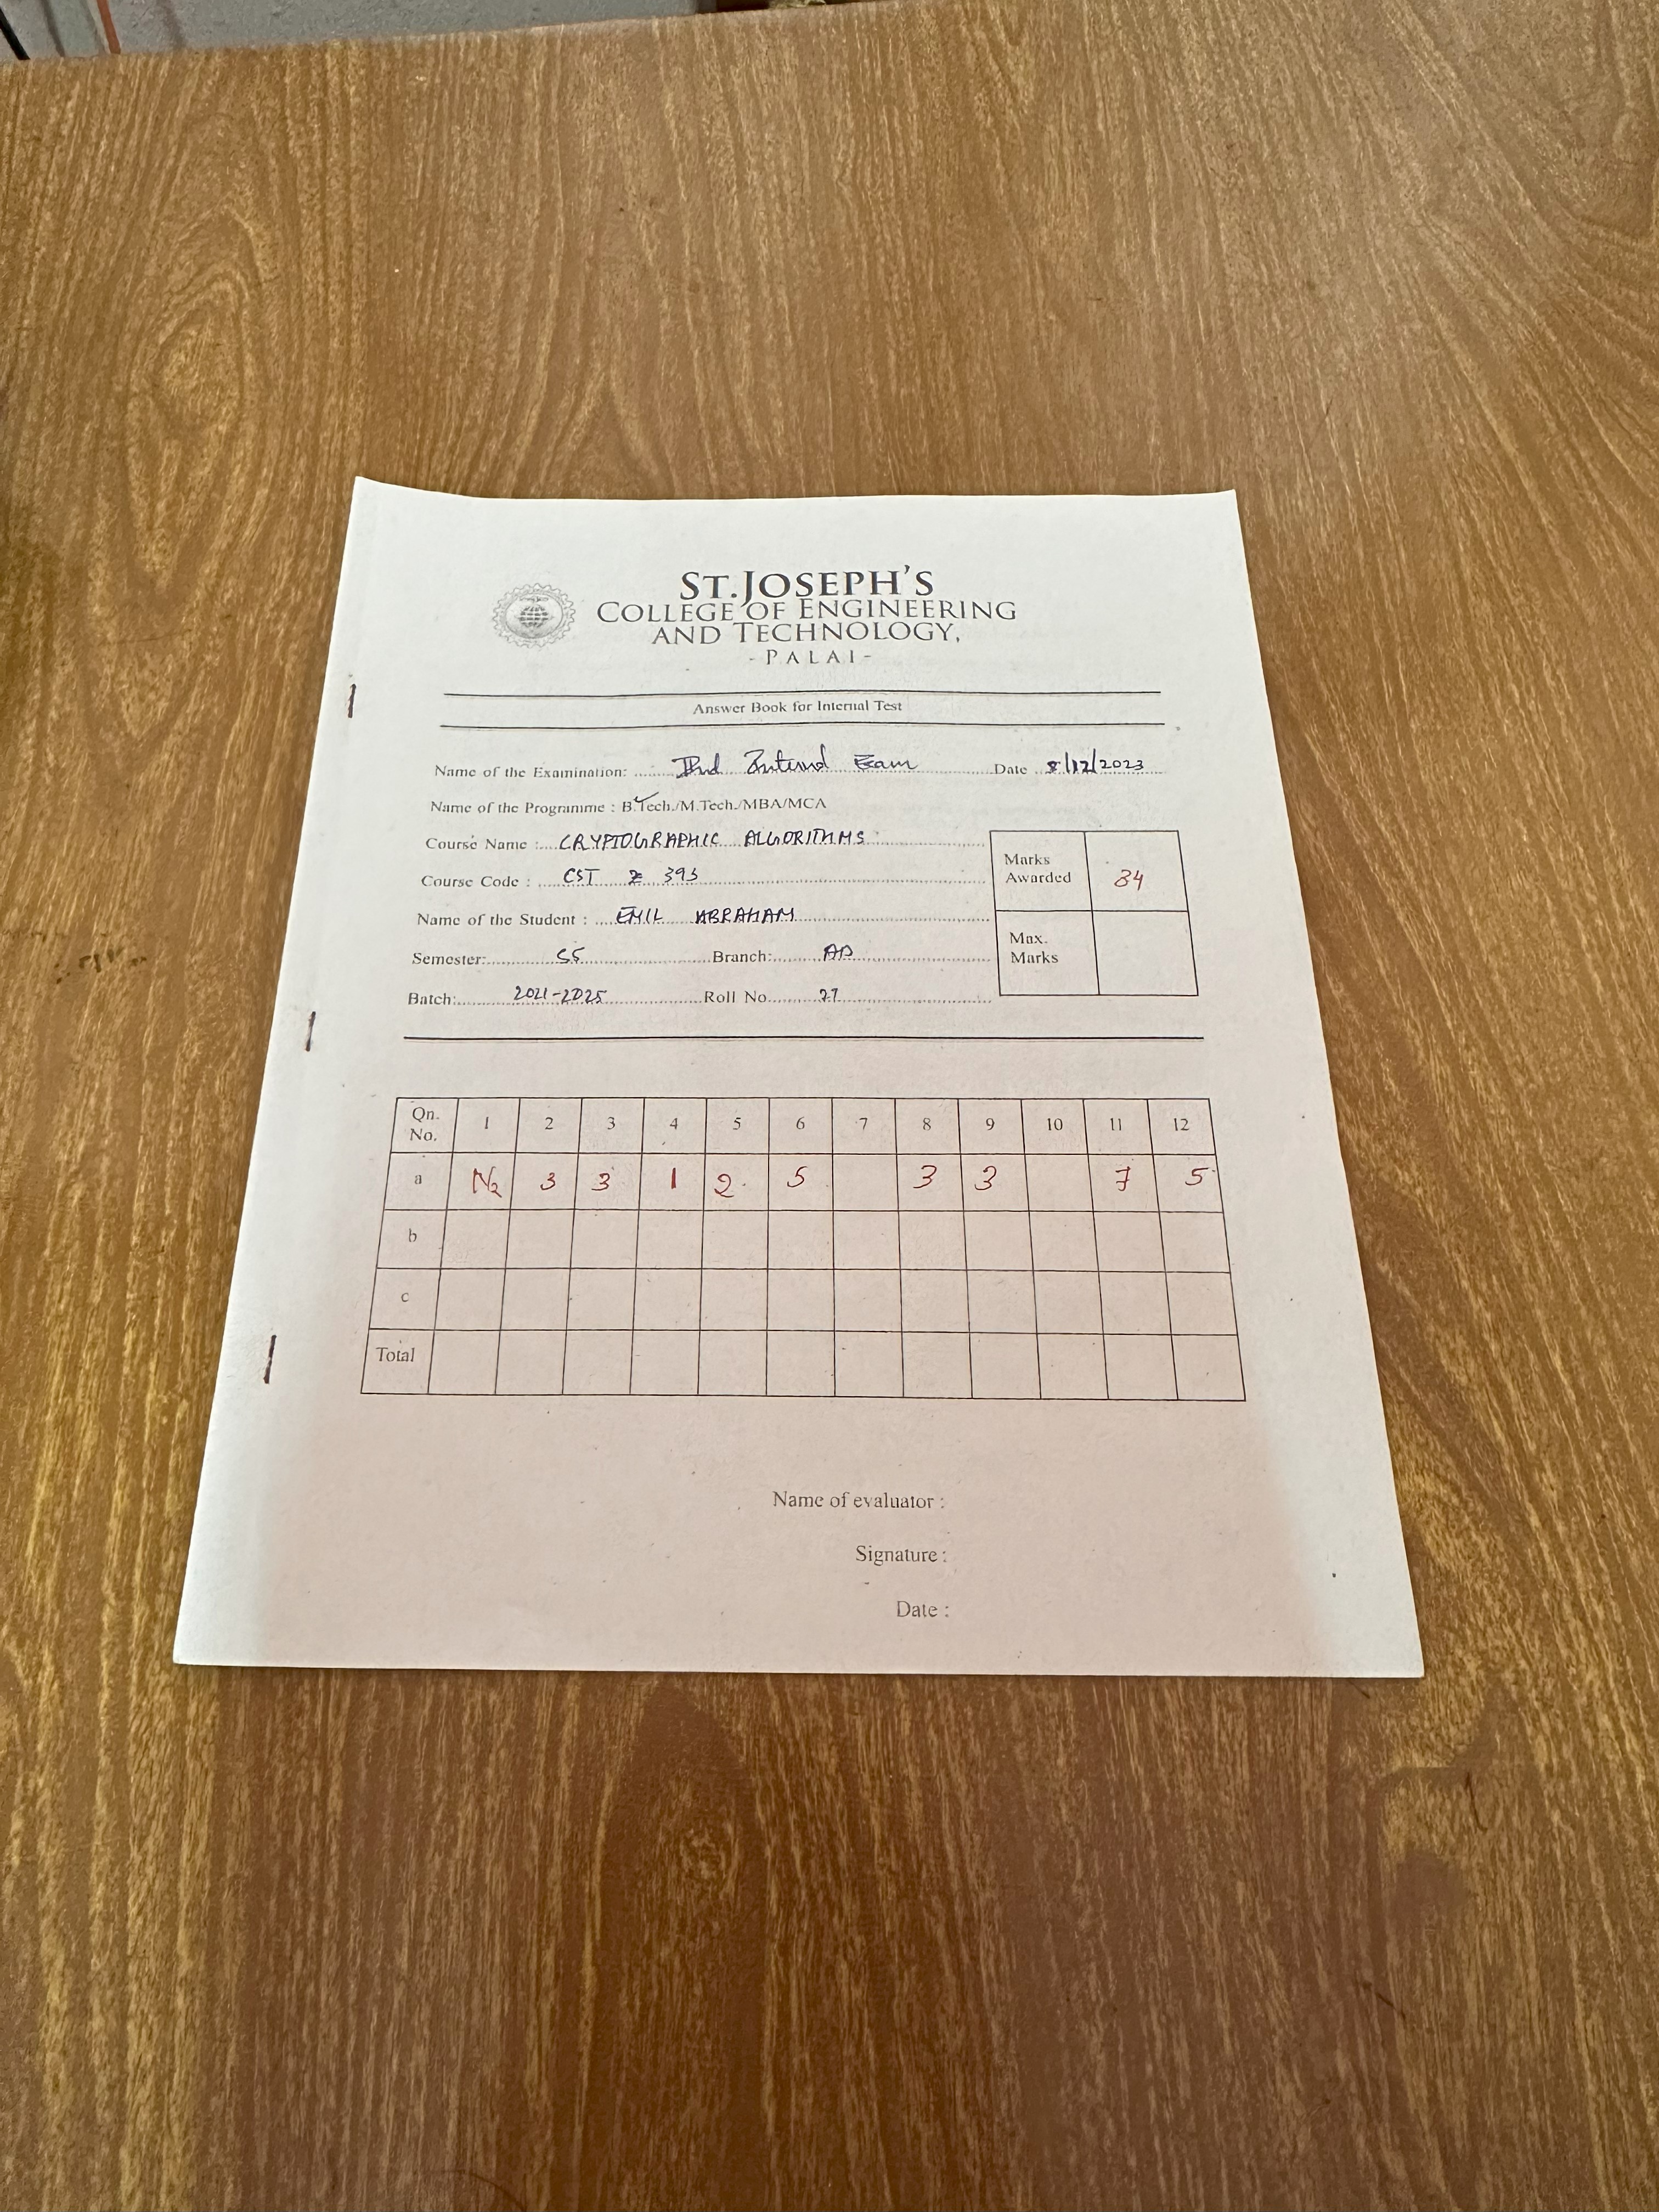 ST.JOSEPH'S
COLLEGE OF ENGINEERING
AND TECHNOLOGY,
- PALAI -
Answer Book for Internal Test
Name of the Examination: IInd Internal Exam Date 8/12/2023
Name of the Programme : B.Tech./M.Tech./MBA/MCA
Course Name : CRYPTOGRAPHIC ALGORITHMS
Course Code : CST 393
Marks Awarded 34
Name of the Student : EMIL ABRAHAM
Max. Marks
Semester: S5 Branch: AD
Batch: 2021-2025 Roll No. 27
Qn. No. 1 2 3 4 5 6 7 8 9 10 11 12
a N2 3 3 1 2 5 3 3 7 5
b
c
Total
Name of evaluator :
Signature :
Date :